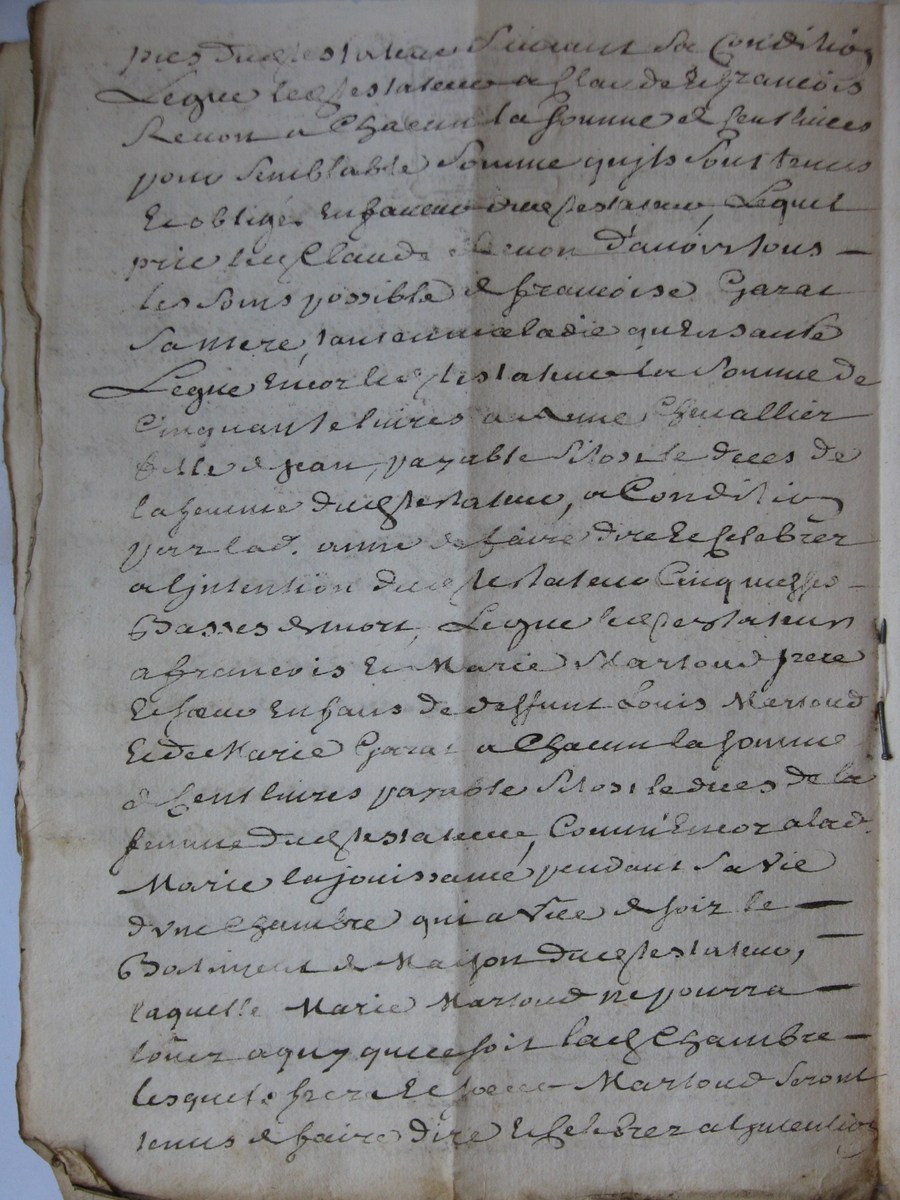 dud. testateur suivant sa Condition
Legue led. testateur a Claude et francois
Renon a Chacun la somme de Cent livres
pour semblable somme qu'jls sont tenus
Et obligés En faveur dud. testateur, Lequel
prie led. Claude Renon d'auóir tous –
les soins possible de francoise Garat
sa mere, tant en maladie qu'En santé
Legue Encor led. testateur la somme de
Cinquante livres a Anne Chevallier
fille de jean, payable sitost le deces de
la femme dud. testateur, a Condition
par lad. anne de faire dire et Celebrer
a l'jntention dud. testateur Cinq messes –
Basses de mort, Legue led. testateur
a francois Et Marie Martoud frere
Et sœur Enfans de deffunt Louis Martoud
Et de Marie Garat a Chacun la somme
de Cent livres payable sitost le deces de la
femme dud. testateur, Comm'Encor a lad.
Marie la jouissance pendant sa vie
d'vne Chambre qui a de soir le –
Batiment de Maison dud. testateur, –
laquelle Marie Martoud ne pourra –
loüer a quy que ce soit lad. Chambre –
lesquels frere Et sœur Martoud seront
tenus de faire dire et Celebrer a l'jntention